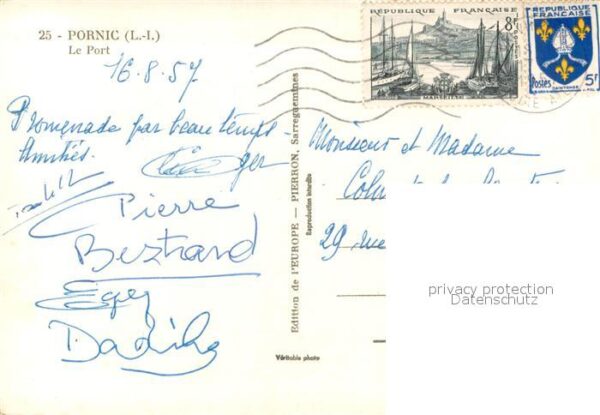 25 - PORNIC (L.-I.)
Le Port
16.8.57
Promenade par beau temps -
Amitiés.
Pierre
Bertrand
Dadiche
Edition de l'EUROPE — PIERRON, Sarreguemines
Reproduction interdite
Véritable photo
RÉPUBLIQUE FRANÇAISE
8F
POSTES
MARSEILLE
REPUBLIQUE FRANÇAISE
Postes
5F
SAINTONGE
Monsieur et Madame
29 rue
privacy protection
Datenschutz